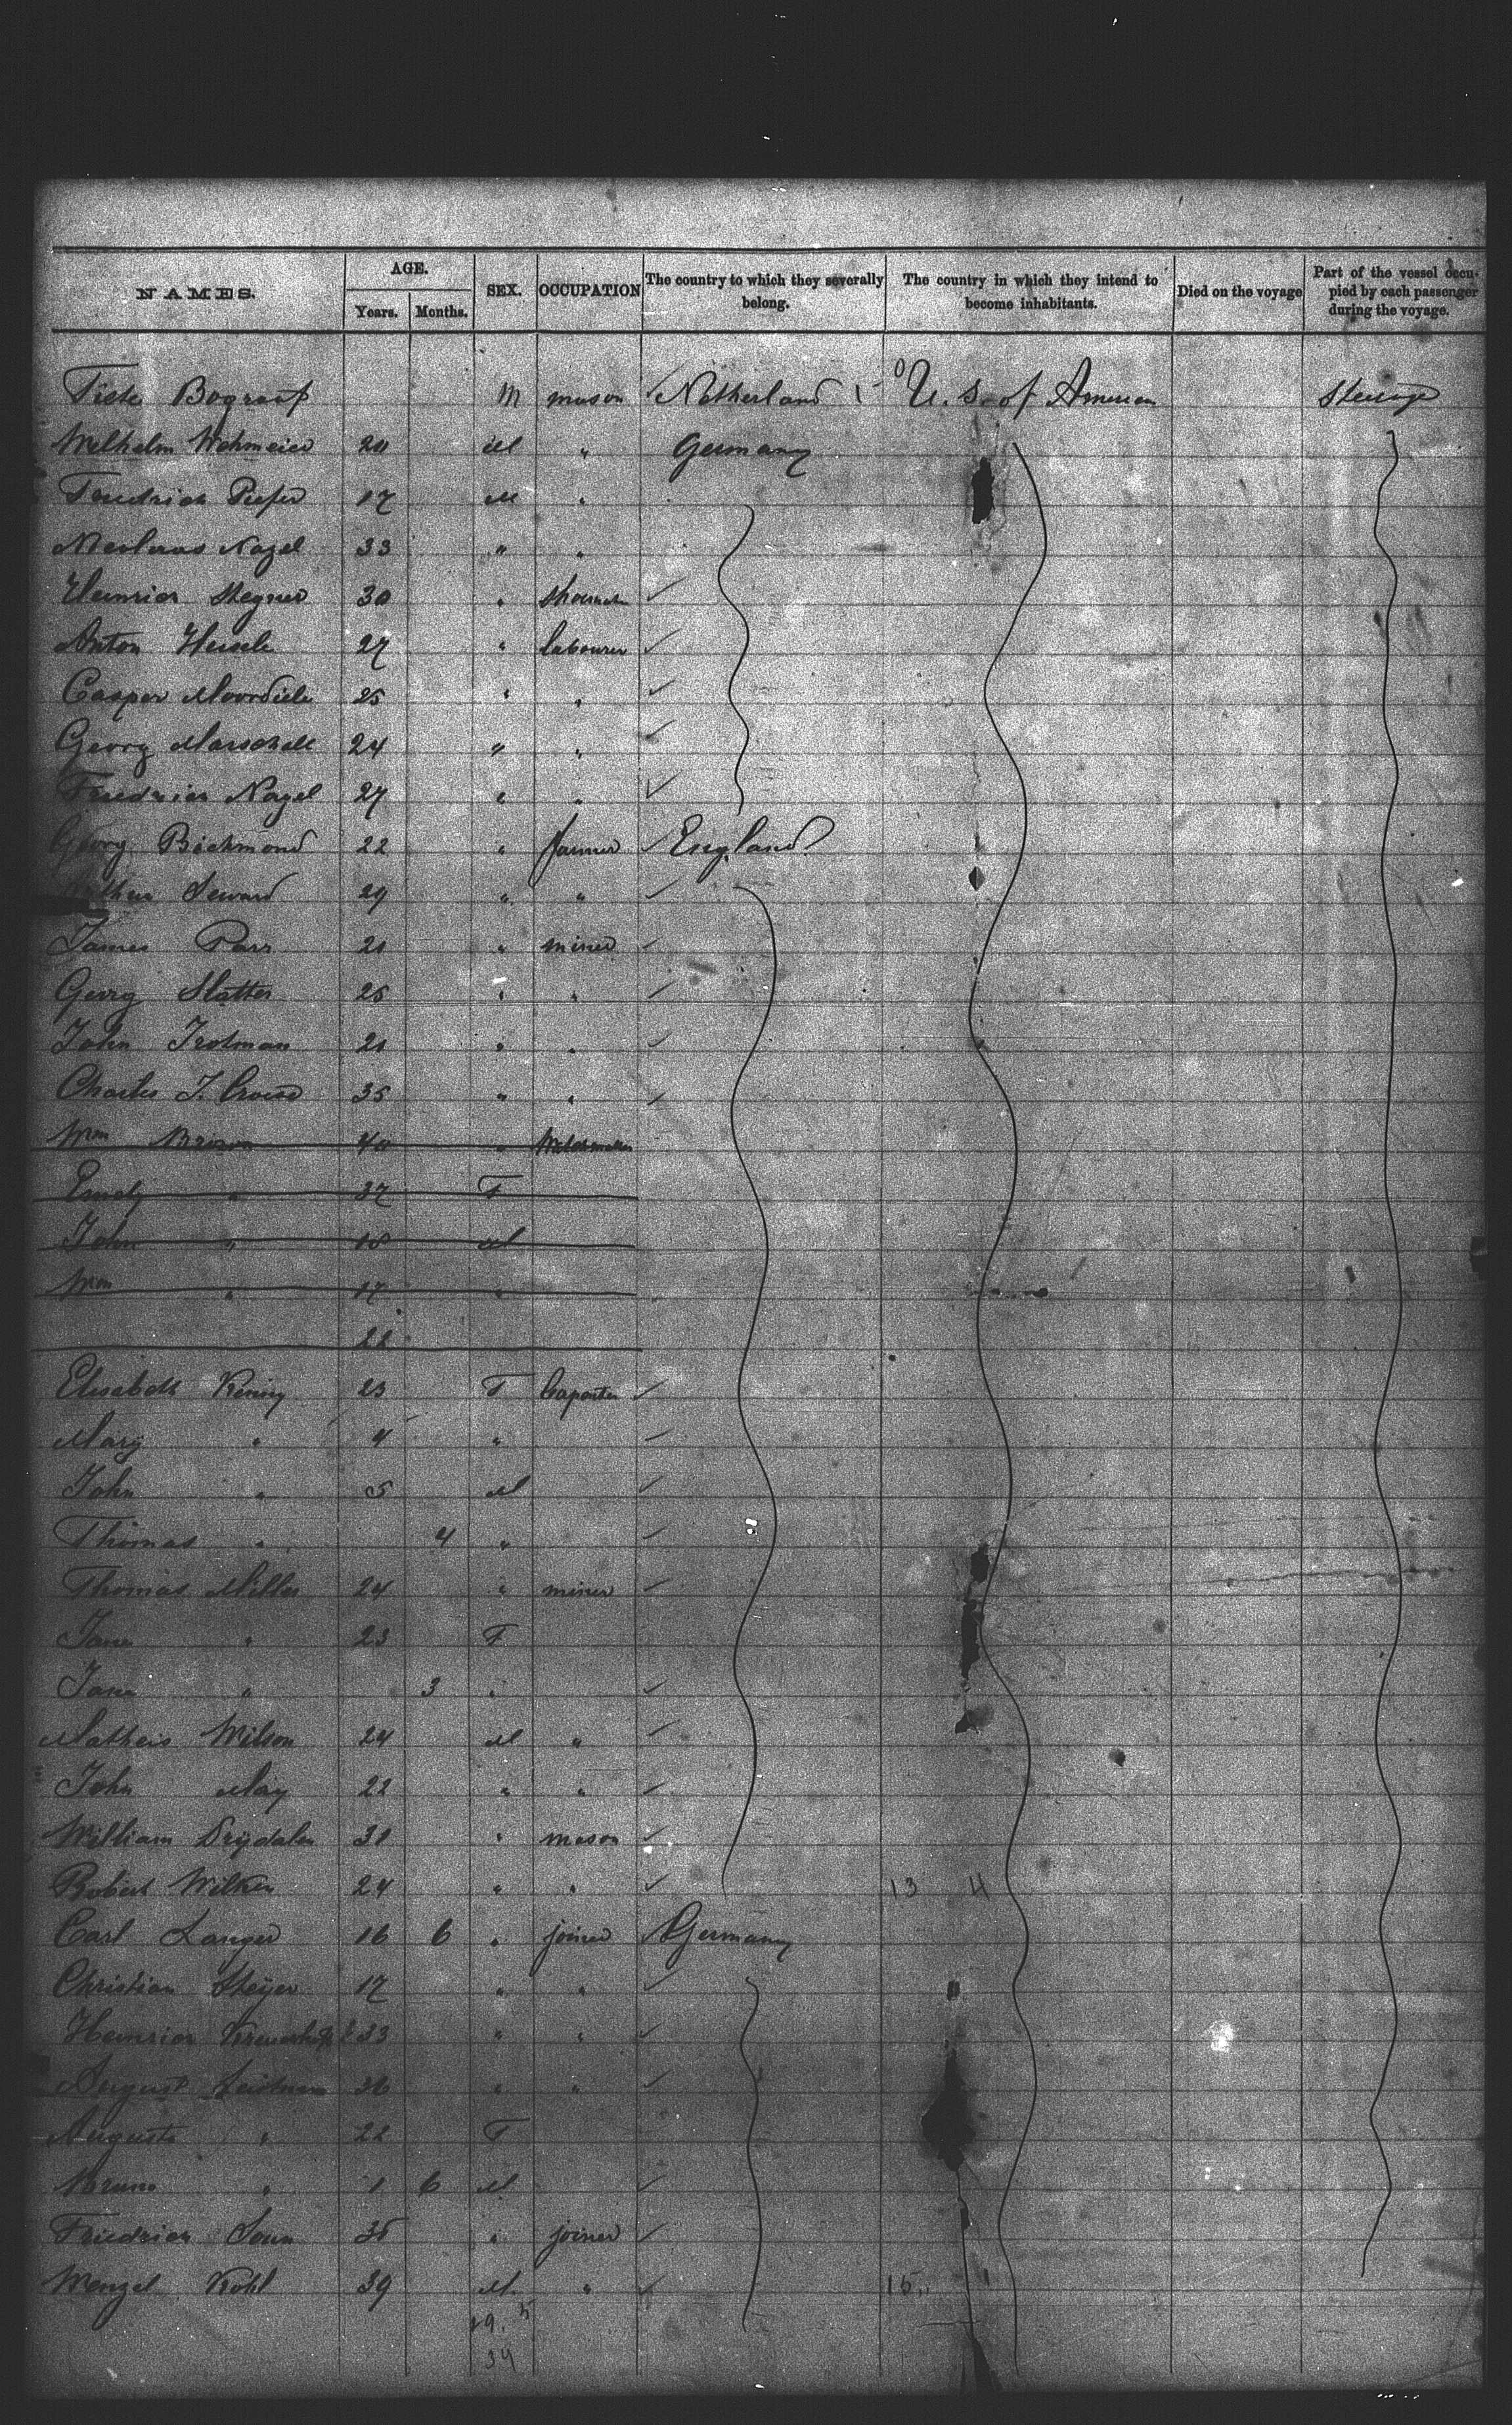 NAMES. AGE. Years. Months. SEX. OCCUPATION The country to which they severally belong. The country in which they intend to become inhabitants. Died on the voyage Part of the vessel occupied by each passenger during the voyage.
Bograaf M mason Netherland U. S. of America Steerage
Wilhelm Wehmeier 20 M " Germany
Friedrich Pieper 17 M "
Nagel 33 " "
Heinrich Stegner 30 "
Anton 27 " labourer
Casper 25 " "
Georg Marschall 24 " "
Friedrich Nagel 27 " "
Georg Richmond 22 " farmer England
Seward 29 " "
James Parr 21 " miner
Georg Slatter 25 " "
John Trotman 21 " "
Charles J. 35 " "
Wm 40 " Watchmaker
Emely " 37 F
John " 18 M
Wm " 17 "
22
Elisabeth Kenny 23 F Caporter
Mary " 4 "
John " 5 M
Thomas " 4 "
Thomas Miller 24 " miner
Jane " 23 F
Jane " 3 "
Matheis Wilson 24 M "
John May 22 " "
William Drydalen 31 " mason
Robert Wilken 24 " " 13 4
Carl Langer 16 6 " joiner Germany
Christian Steyer 17 " "
Heinrich 33 " "
August 36 " "
Auguste " 22 F
Bruno " 1 6 M
Friedrich 35 " joiner
Wenzel Kohl 39 M " 15
29. 5
34